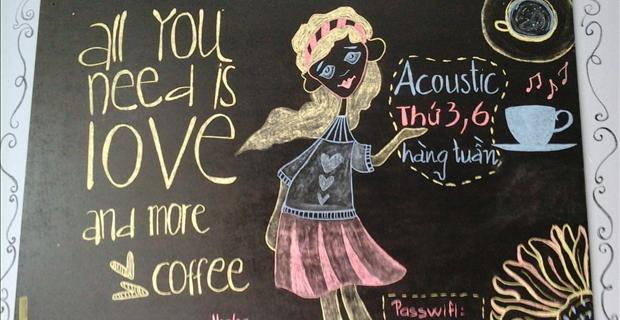 all YOU
need is
love
and more
coffee
Acoustic
Thứ 3,6
hàng tuần
Passwifi: